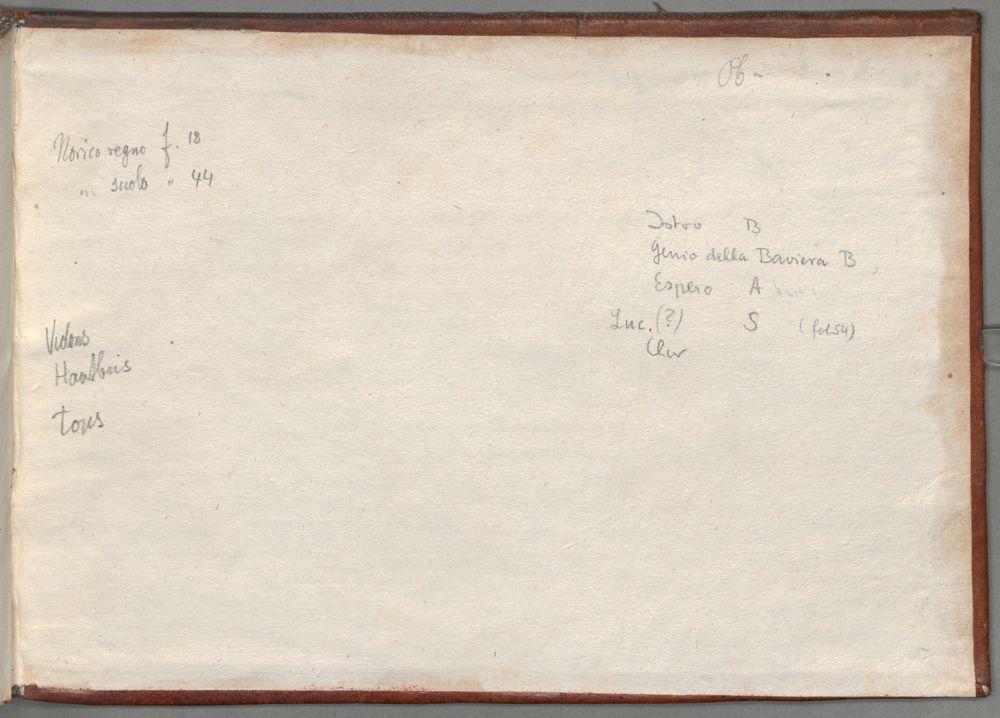 Ob-
Norico regno f. 18
" suolo " 44
Istro B
Genio della Baviera B
Espero A
Luc. (?) S (fol 54)
Chor
Violons
Hautbois
tous